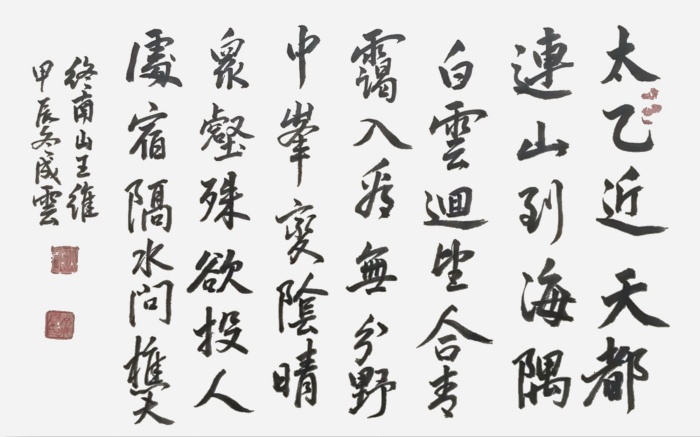 太乙近天都
連山到海隅
白雲迴望合青
靄入看無
分野
中峯變陰晴
眾壑殊欲投人
處宿隔水問樵夫
終南山王維
甲辰冬成雲